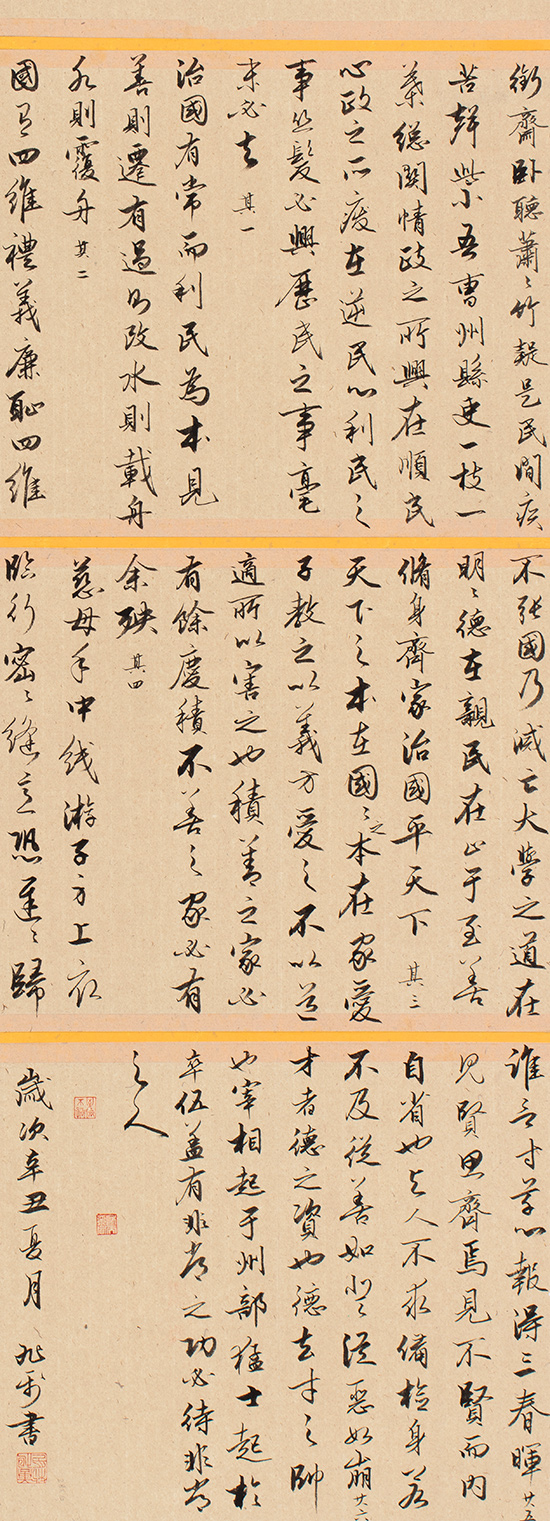 衙齋卧聽蕭〻竹疑是民間疾
苦聲些小吾曹州縣吏一枝一
葉總關情政之所興在順民
心政之所廢在逆民心利民之
事丝髮必興厲民之事毫
末必去 其一
治國有常而利民為本見
善則遷有過則改水則載舟
水則覆舟 其二
國有四維禮義廉恥四維
不张國乃滅亡大學之道在
明〻德在親民在止于至善
脩身齊家治國平天下 其三
天下之本在國〻之本在家愛
子教之以義方愛之不以道
適所以害之也積善之家必
有餘慶積不善之家必有
余殃 其四
慈母手中线游子身上衣
臨行密〻縫意恐遲〻歸
誰言寸草心報得三春暉 其五
見賢思齊焉見不賢而内
自省也与人不求備檢身若
不及從善如登從惡如崩 其六
才者德之資也德者才之帥
也宰相起于州部猛士起於
卒伍蓋有非常之功必待非常
之人
歲次辛丑夏月 書